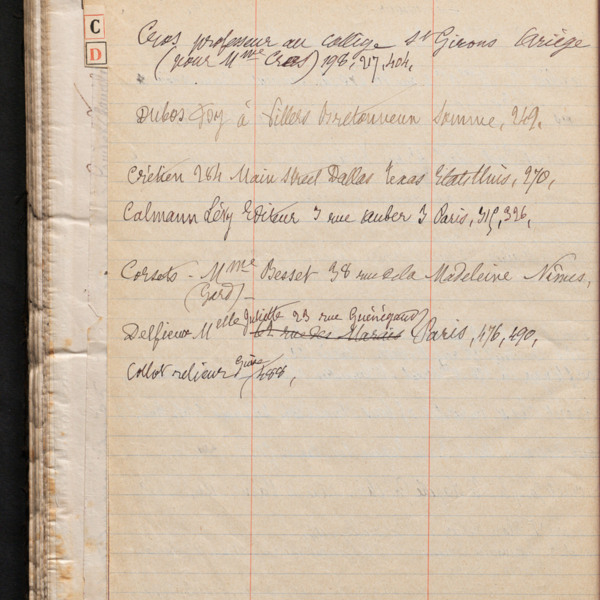 C
D
Cros professeur au collège St Girons Ariège
(pour Mme Cros) 198, 217, 404,
Dubos à Villers Bretonneux Somme, 249,
284 Main Street Dallas Texas Etats Unis, 270,
Calmann Lévy Editeur 3 rue Auber 3 Paris, 315, 326,
Corsets - Mme Besset 38 rue de la Madeleine Nîmes,
(Gard) -
Delfieux Melle Juliette 23 rue Guénégaud
rue des Marais Paris, 476, 490,
Collot relieur 488,